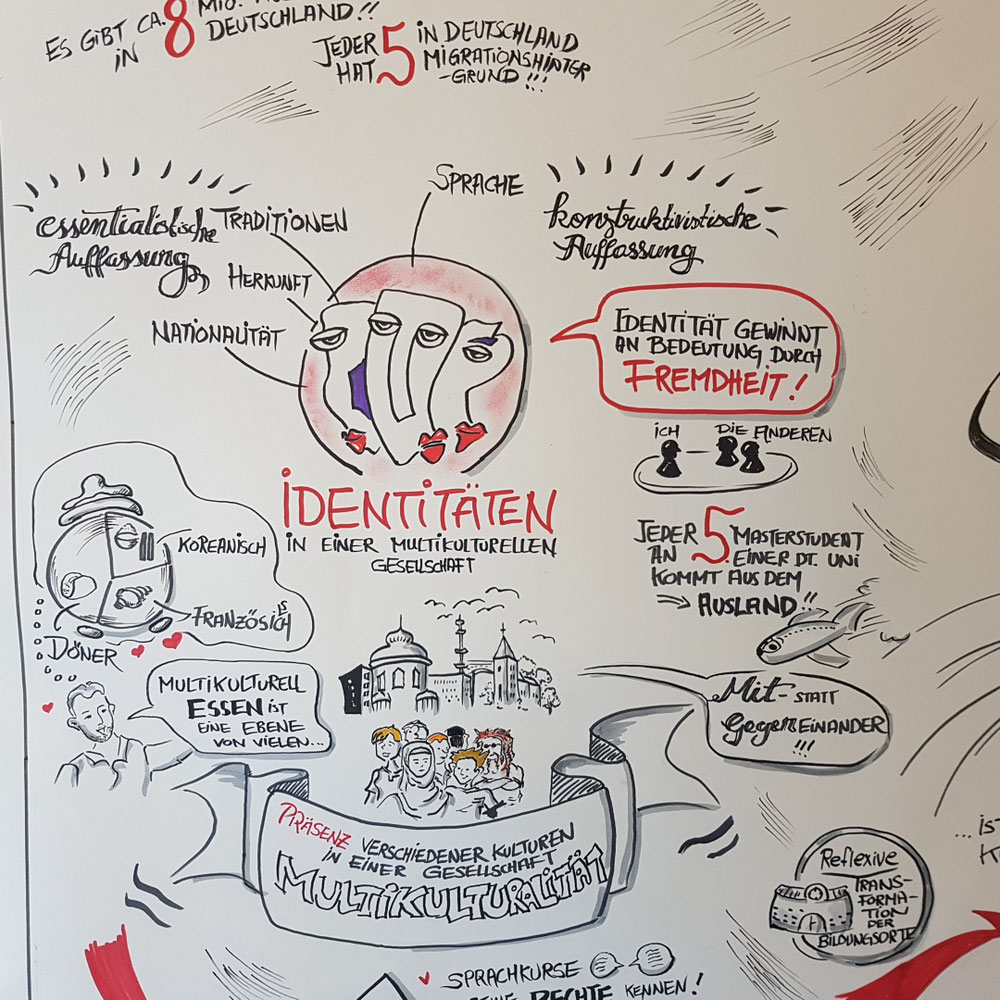 ES GIBT CA. 8 MIO.
IN DEUTSCHLAND!!
JEDER 5 IN DEUTSCHLAND
HAT MIGRATIONSHINTER
-GRUND!!!
essentialistische
Auffassung
TRADITIONEN
HERKUNFT
NATIONALITÄT
SPRACHE
konstruktivistische
Auffassung
IDENTITÄT GEWINNT
AN BEDEUTUNG DURCH
FREMDHEIT!
ICH DIE ANDEREN
IDENTITÄTEN
IN EINER MULTIKULTURELLEN
GESELLSCHAFT
JEDER 5. MASTERSTUDENT
AN EINER DT. UNI
KOMMT AUS DEM
⇒ AUSLAND!!
KOREANISCH
FRANZÖSISCH
DÖNER
MULTIKULTURELL
ESSEN IST
EINE EBENE
VON VIELEN...
Mit- STATT
GegenEINANDER
!!!
PRÄSENZ VERSCHIEDENER KULTUREN
IN EINER GESELLSCHAFT
MULTIKULTURALITÄT
Reflexive
TRANS-
FORMA-
TION
DER
BILDUNGSORTE
... is
SPRACHKURSE
RECHTE KENNEN!